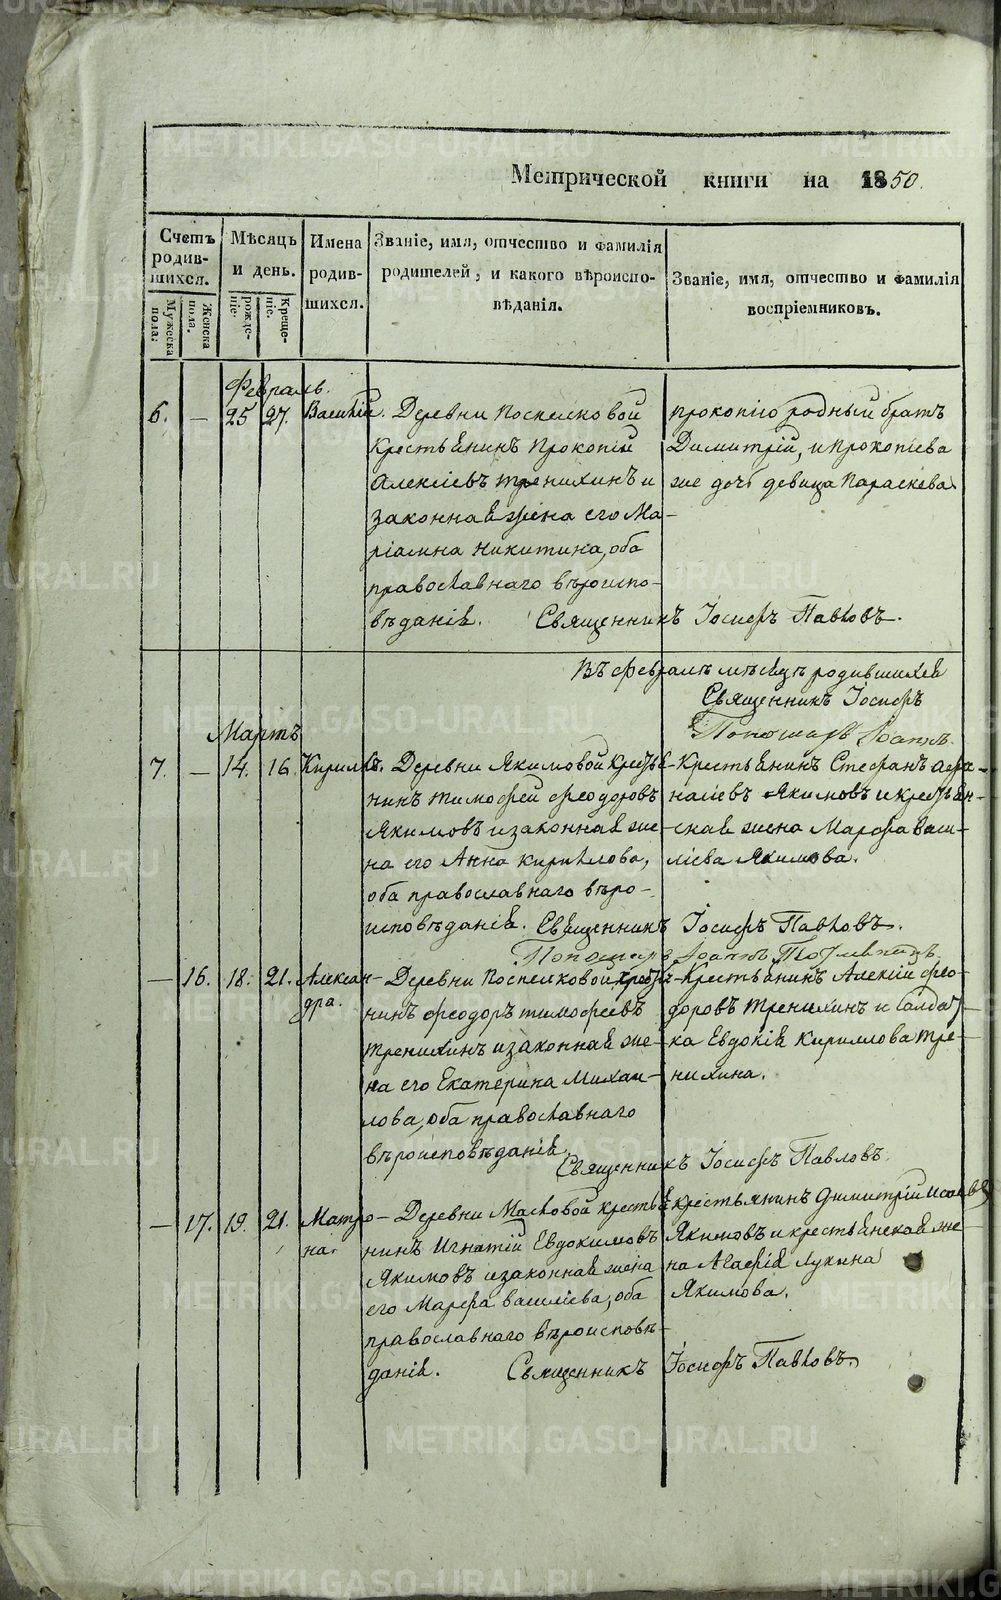 METRIKI.GASO-URAL.RU
Метрической книги на 1850.
Счетъ родив-шихся.
Мужеска пола.
Женска пола.
Мѣсяцъ и день.
рожде-ніе.
креще-ніе.
Имена родив-шихся.
Званіе, имя, отчество и фамилія родителей, и какого вѣроиспо-вѣданія.
Званіе, имя, отчество и фамилія воспріемниковъ.
Февраль.
6. — 25 27. Василій. Деревни Поспелковой
крестьянинъ Прокопій
Алексіевъ Тренихинъ и
законная жена его Ма-
ріамна Никитина, оба
православнаго вѣроиспо-
вѣданія.
Прокопію родный братъ
Димитрій, и Прокопіева
же дочь девица Параскева
Священникъ Іосифъ Павловъ.
Въ февралѣ мѣсяцѣ родившихся
Священникъ Іосифъ
Пономарь Іоаннъ
Мартъ
7. — 14. 16. Кириллъ. Деревни Якимовой кресть-
нинъ Тимофей Феодоровъ
Якимовъ и законная же-
на его Анна Кирилова,
оба православнаго вѣро-
исповѣданія.
Крестьянинъ Стефанъ Афа-
насіевъ Якимовъ и крестьян-
ская жена Марфа Васи-
ліева Якимова.
Священникъ Іосифъ Павловъ.
Пономарь Іоаннъ
— 16. 18. 21. Алексан-
дра.
Деревни Поспелковой крестья-
нинъ Феодоръ Тимофеевъ
Тренихинъ и законная же-
на его Екатерина Михаи-
лова, оба православнаго
вѣроисповѣданія.
Крестьянинъ Алексій Фео-
доровъ Тренихинъ и солдат-
ка Евдокія Кириллова Тре-
нихина.
Священникъ Іосифъ Павловъ
— 17. 19. 21. Матро-
на.
Деревни Масловой крестья-
нинъ Игнатій Евдокимовъ
Якимовъ и законная жена
его Марфа Василіева, оба
православнаго вѣроисповѣ-
данія.
крестьянинъ Димитрій Исаевъ
Якимовъ и крестьянская же-
на Агафія Лукина
Якимова.
Священникъ Іосифъ Павловъ.